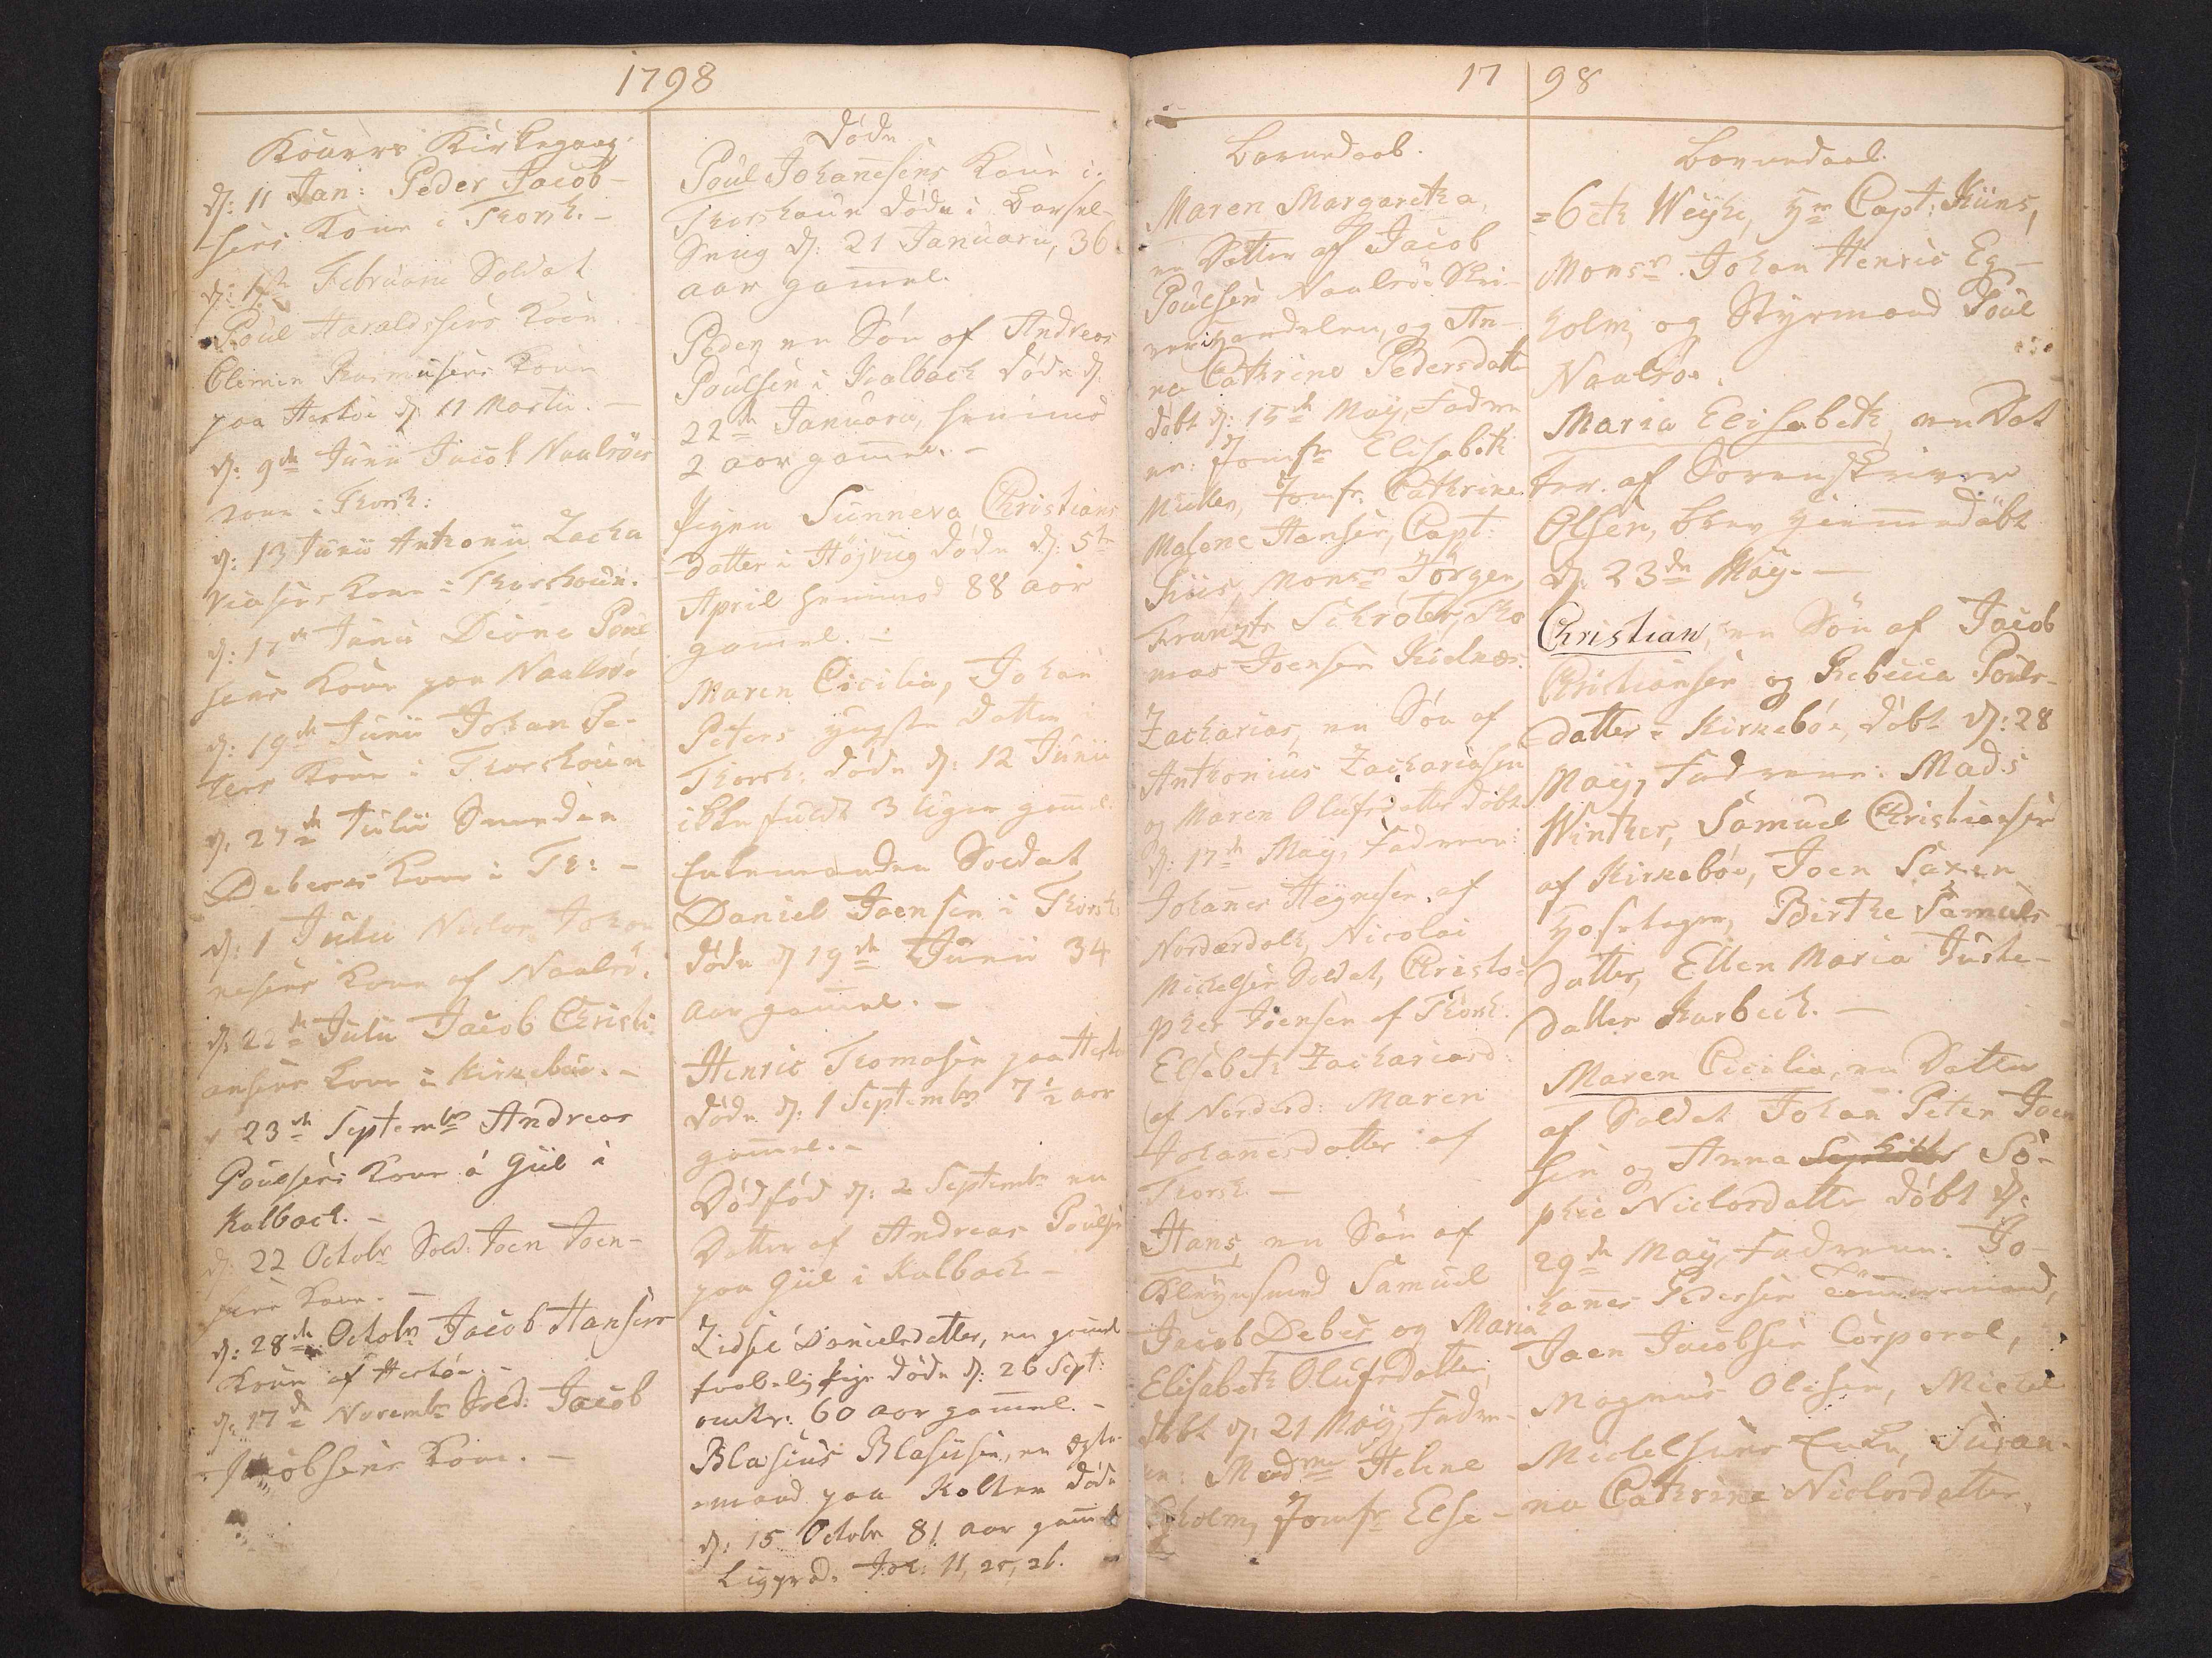 1798
Koners Kirkegang.
d: 11 Jan: Peder Jacob-
sens Kone i Thorsh. -
Februarii Soldat
Poul Haraldssens Kone
Clemen Rasmusens Kone
paa Hestøe d: 11 Martii. -
d: 9de Junii Jacob Naalsøes
Kone i Thorsh:
d: 13 Junii Anthonii Zacha
riasens Kone i Thorshavn.
d: 17de Junii Dione Poul
sens Kone paa Naalsøe
d: 19de Junii Johan Pe-
ters Kone i Thorshavn
d. 27de Julii Smeden
Debeses Kone i Th: -
d: 1 Julii Niclas Johan
nesens Kone af Naalsø.
d: 22de Julii Jacob Christi-
ansens Kone i Kirkebøe. -
d 23de Septembr Andreas
Poulsens Kone á Giil i
Kalbach. -
d: 22 Octobr Sold: Joen Joen-
sens Kone. -
d: 28de Octobr Jacob Hansens
Kone af Hestøe. -
d: 17de Novembr Sold: Jacob
Jacobsens Kone. -
Døde
Poul Johannesens Kone i
Thorshavn døde i Barsel-
Seng d: 21 Januarii, 36
aar gammel.
Peder, en Søn af Andreas
Poulsen i Kalbach døde d:
22de Januarii, henimod
2 aar gammel. -
Pigen Sunneva Christians
datter i Højviig døde d: 5te
April henimod 88 aar
gammel. -
Maren Cicilia, Johan
Peters yngste Datter i
Thorsh: døde d: 12 Junii
ikke fuldt 3 Uger gammel.
Enkemanden Soldat
Daniel Joensen i Thorsh:
døde d 19de Junii 34
aar gammel. -
Henric Thomasen paa Hestø
døde d: 1 Septembr 7½ aar
gammel. -
Dødfød d: 2 Septembr en
Datter af Andreas Poulsen
paa Giil i Kalbach -
Zidsel Danielsdatter, en gammel
Pige døde d: 26 Sept:
omtr: 60 aar gammel. -
Blasius Blasiisen, en Ægte-
mand paa Kolter døde
d: 15 Octobr 81 aar gammel
Ligpræd. Joh: 11, 25, 26.
17 98
Barnedaab.
Maren Margaretha,
en Datter af Jacob
Poulsen Naalsøe Skri-
ver i Handelen, og An-
na Cathrine Pedersdatter
døbt d: 15de May, Fadre
ne: Jomfr Elisabeth
Müller, Jomfr. Cathrine
Malene Hansen, Capt:
Monsr Jørgen
Frantz Schrøter, Tho
mas Joensen
Zacharias, en Søn af
Anthonius Zachariasen
og Maren Olufsdatter døbt
d: 17de May, Fadrene:
Johannes Heynesen af
Norderdahl, Nicolai
Michelsen Soldat, Christo-
pher Joensen af Thorsh.
Elsebeth Zachariæd:
af Norderd: Maren
Johannesdatter af
Thorsh -
Hans, en Søn af
Kleynsmed Samuel
Jacob Debes og Maria
Elisabeth Olufsdatter,
døbt d: 21 May, Fadre-
ne: Madme Helene
Egholm, Jomfr Else-
Barnedaab.
=beth Weyhe, Hr Capt:
Monsr Johan Henric Eg-
holm, og Styrmand Poul
Naalsøe.
Maria Elisabeth, en Dat
ter af Sorenskriver
Olsen, blev hiemmedøbt
d: 23de May. -
Christian, en Søn af Jacob
Christiansen og Rebecca Pouls-
datter i Kirkebøe, døbt d: 28
May, Fadrene: Mads
Winther, Samuel Christiansen
af Kirkebøe, Joen Saxen
Birthe Samuels
datter, Ellen Maria Juste-
datter Harbech. -
Maren Cicilia, en Datter
af Soldat Johan Peter Joen
sen og Anna So-
phie Niclasdatter døbt d:
29de May, Fadrene: Jo-
hannes Pedersen Tømmermand,
Joen Jacobsen Corporal,
Magnus Olesen, Michel
Michelsens Enke, Susan-
na Cathrine Niclasdatter.